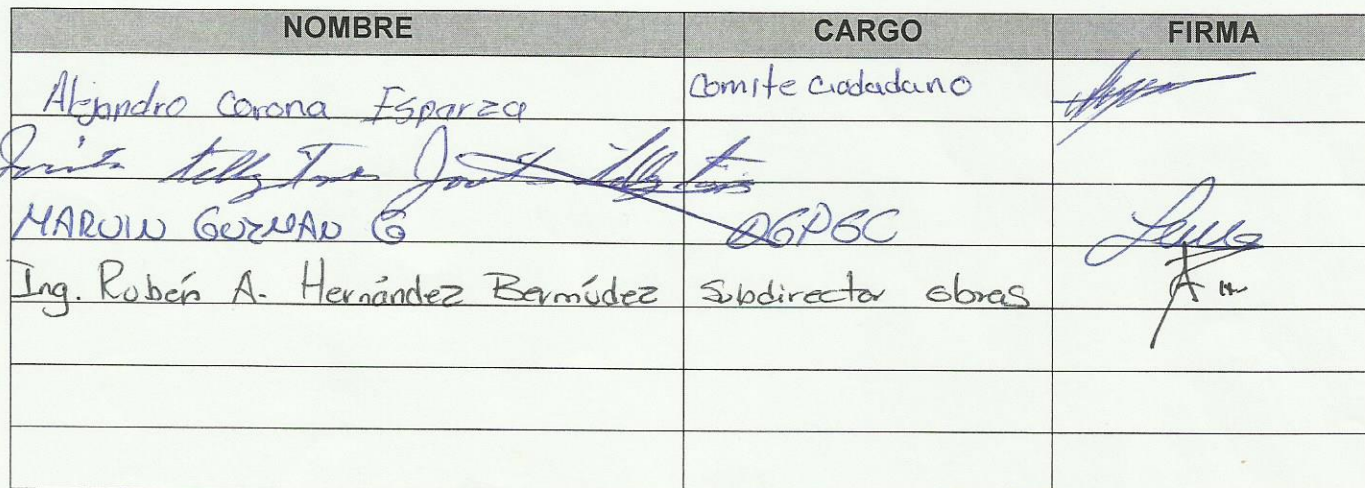 NOMBRE CARGO FIRMA
Alejandro Corona Esparza Comite Ciudadano
MARVIN GUZMAN G DGPGC
Ing. Rubén A. Hernández Bermúdez Subdirector obras